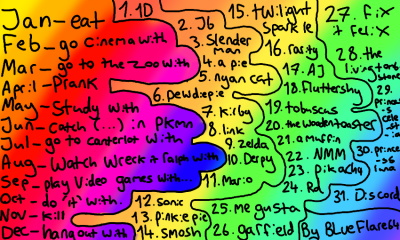 Jan-eat
Feb-go cinema with
Mar-go to the zoo with
April-Prank
May-Study with
Jun-catch (...) in PKMN
Jul-go to canterlot with
Aug-Watch Wreck it Ralph with
Sep-play Video games with...
Oct do 'it' with.
Nov-kill
Dec-hang out with
1. 1D
2. Jb
3. Slender
man
4. a pie
5. nyan cat
6. Pewdiepie
7. Kirby
8. link
9. zelda
10. Derpy
11. Mario
12. sonic
13. pinkie pie
14. Smosh
15. twilight
Sparkle
16. rarity
17. AJ
18. Fluttershy
19. tobuscus
20. the wooden toaster
21. a muffin
22. NMM
23. pikachu
24.
25. Me gusta
26. garfield
27. Fix
it Felix
28. the
living tombstone
29.
princess
celestia
30. princess
luna
31. Discord
By BlueFlare64